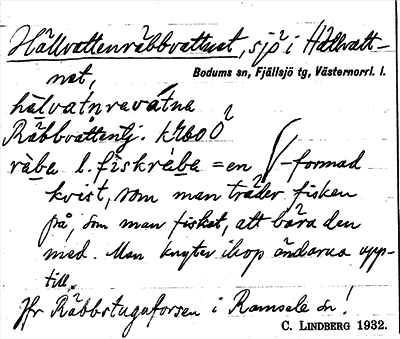 Hällvattenräbbvattnet, sjö i Hällvatt-
net,
Bodums sn, Fjällsjö tg, Västernorrl. l.
hälvatnravatna
Räbbvattenbj. k 7600 Ö
räba l. fiskräba = en -formad
kvist, som man träder fisken
på, som man fiskat, att bära den
med. Man knyter ihop ändarna upp-
till.
Jfr Räbbstuguforsen i Ramsele sn!
C. LINDBERG 1932.